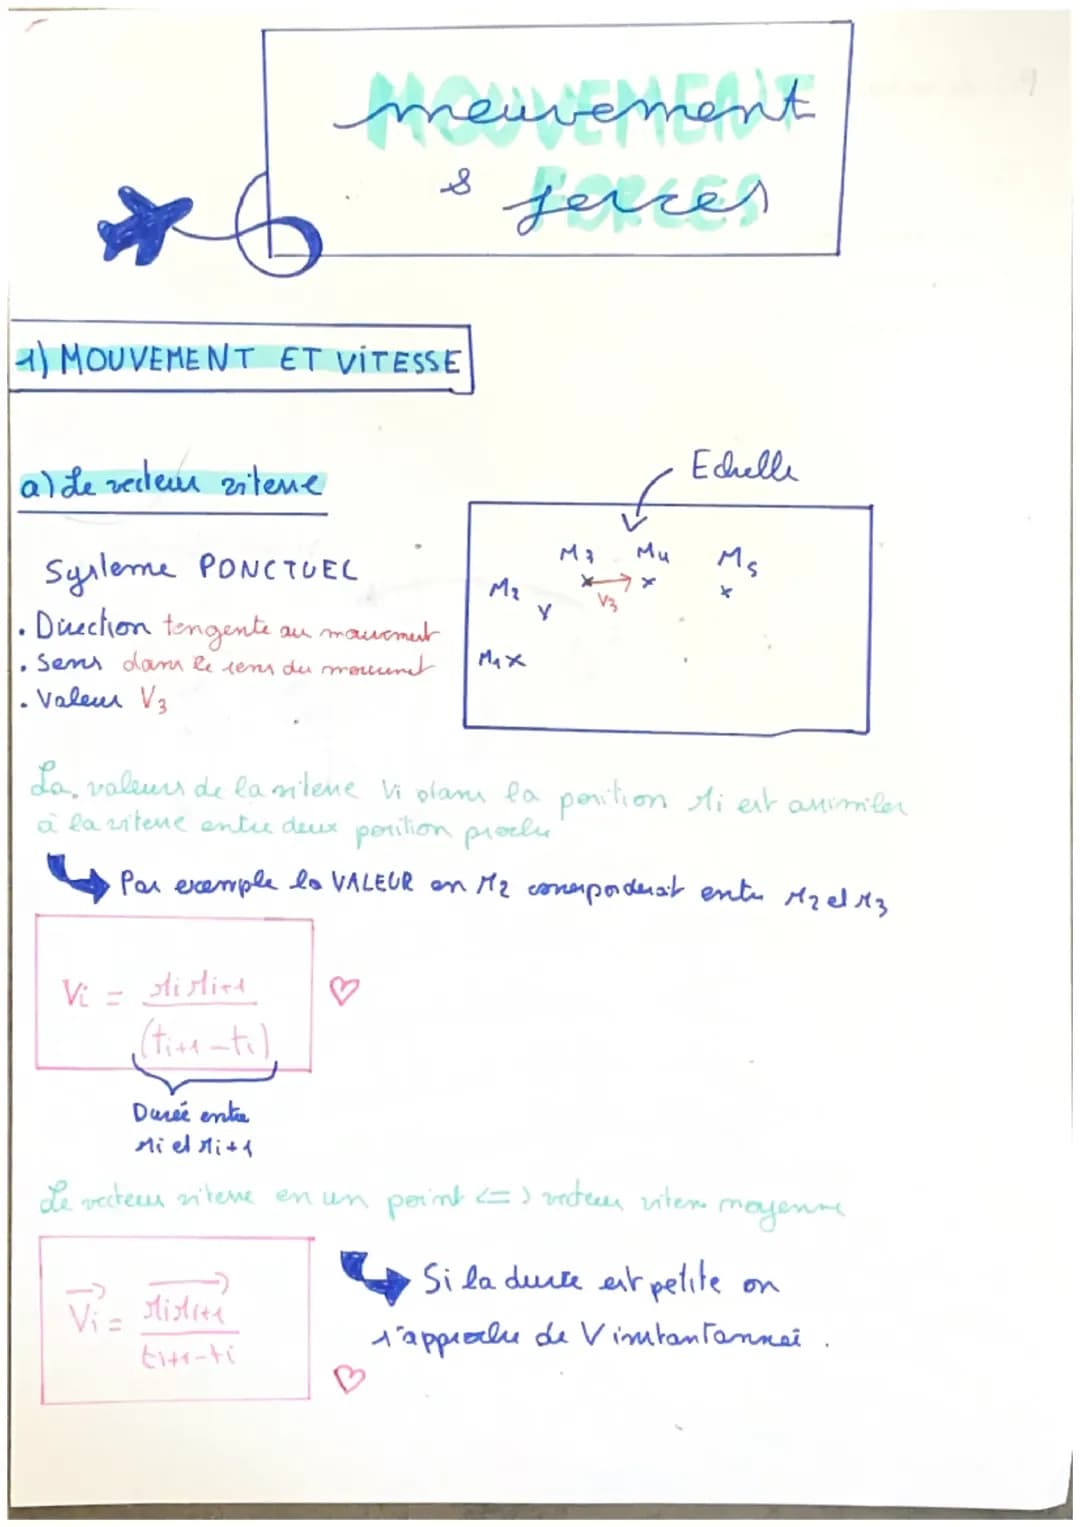 MOUVEMENT
mouvement
FORCES
& forces
1) MOUVEMENT ET VITESSE
a) Le vecteur vitesse
Echelle
Systeme PONCTUEL
. Direction tengente au mouvement
. Sens dans le sens du mouvement
. Valeur V3
M3 M4 M5
M2
V3
M1
La valeurs de la vitesse Vi dans la position Mi est assimiler
à la vitesse entre deux position proche
Par exemple la VALEUR en M2 conresponderait entre M2 et M3
Vi = MiMi+1
(ti+1-ti)
Dureé entre
Mi et Mi+1
Le vecteur vitesse en un point <=> vecteur vitesse moyenne
Vi = MiMi+1
ti+1-ti
Si la durée est petite on
s'approche de V instantanneé .